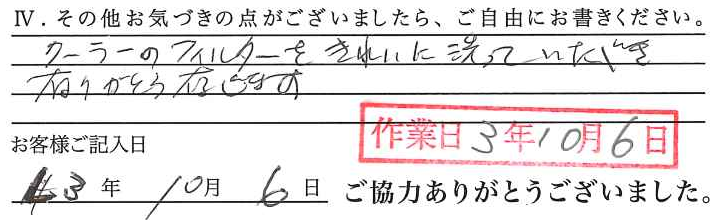 Ⅳ．その他お気づきの点がございましたら、ご自由にお書きください。
クーラーのフィルターをきれいに洗っていただき
有りがとう存じます
お客様ご記入日
作業日 3年10月6日
3年 10月 6日 ご協力ありがとうございました。